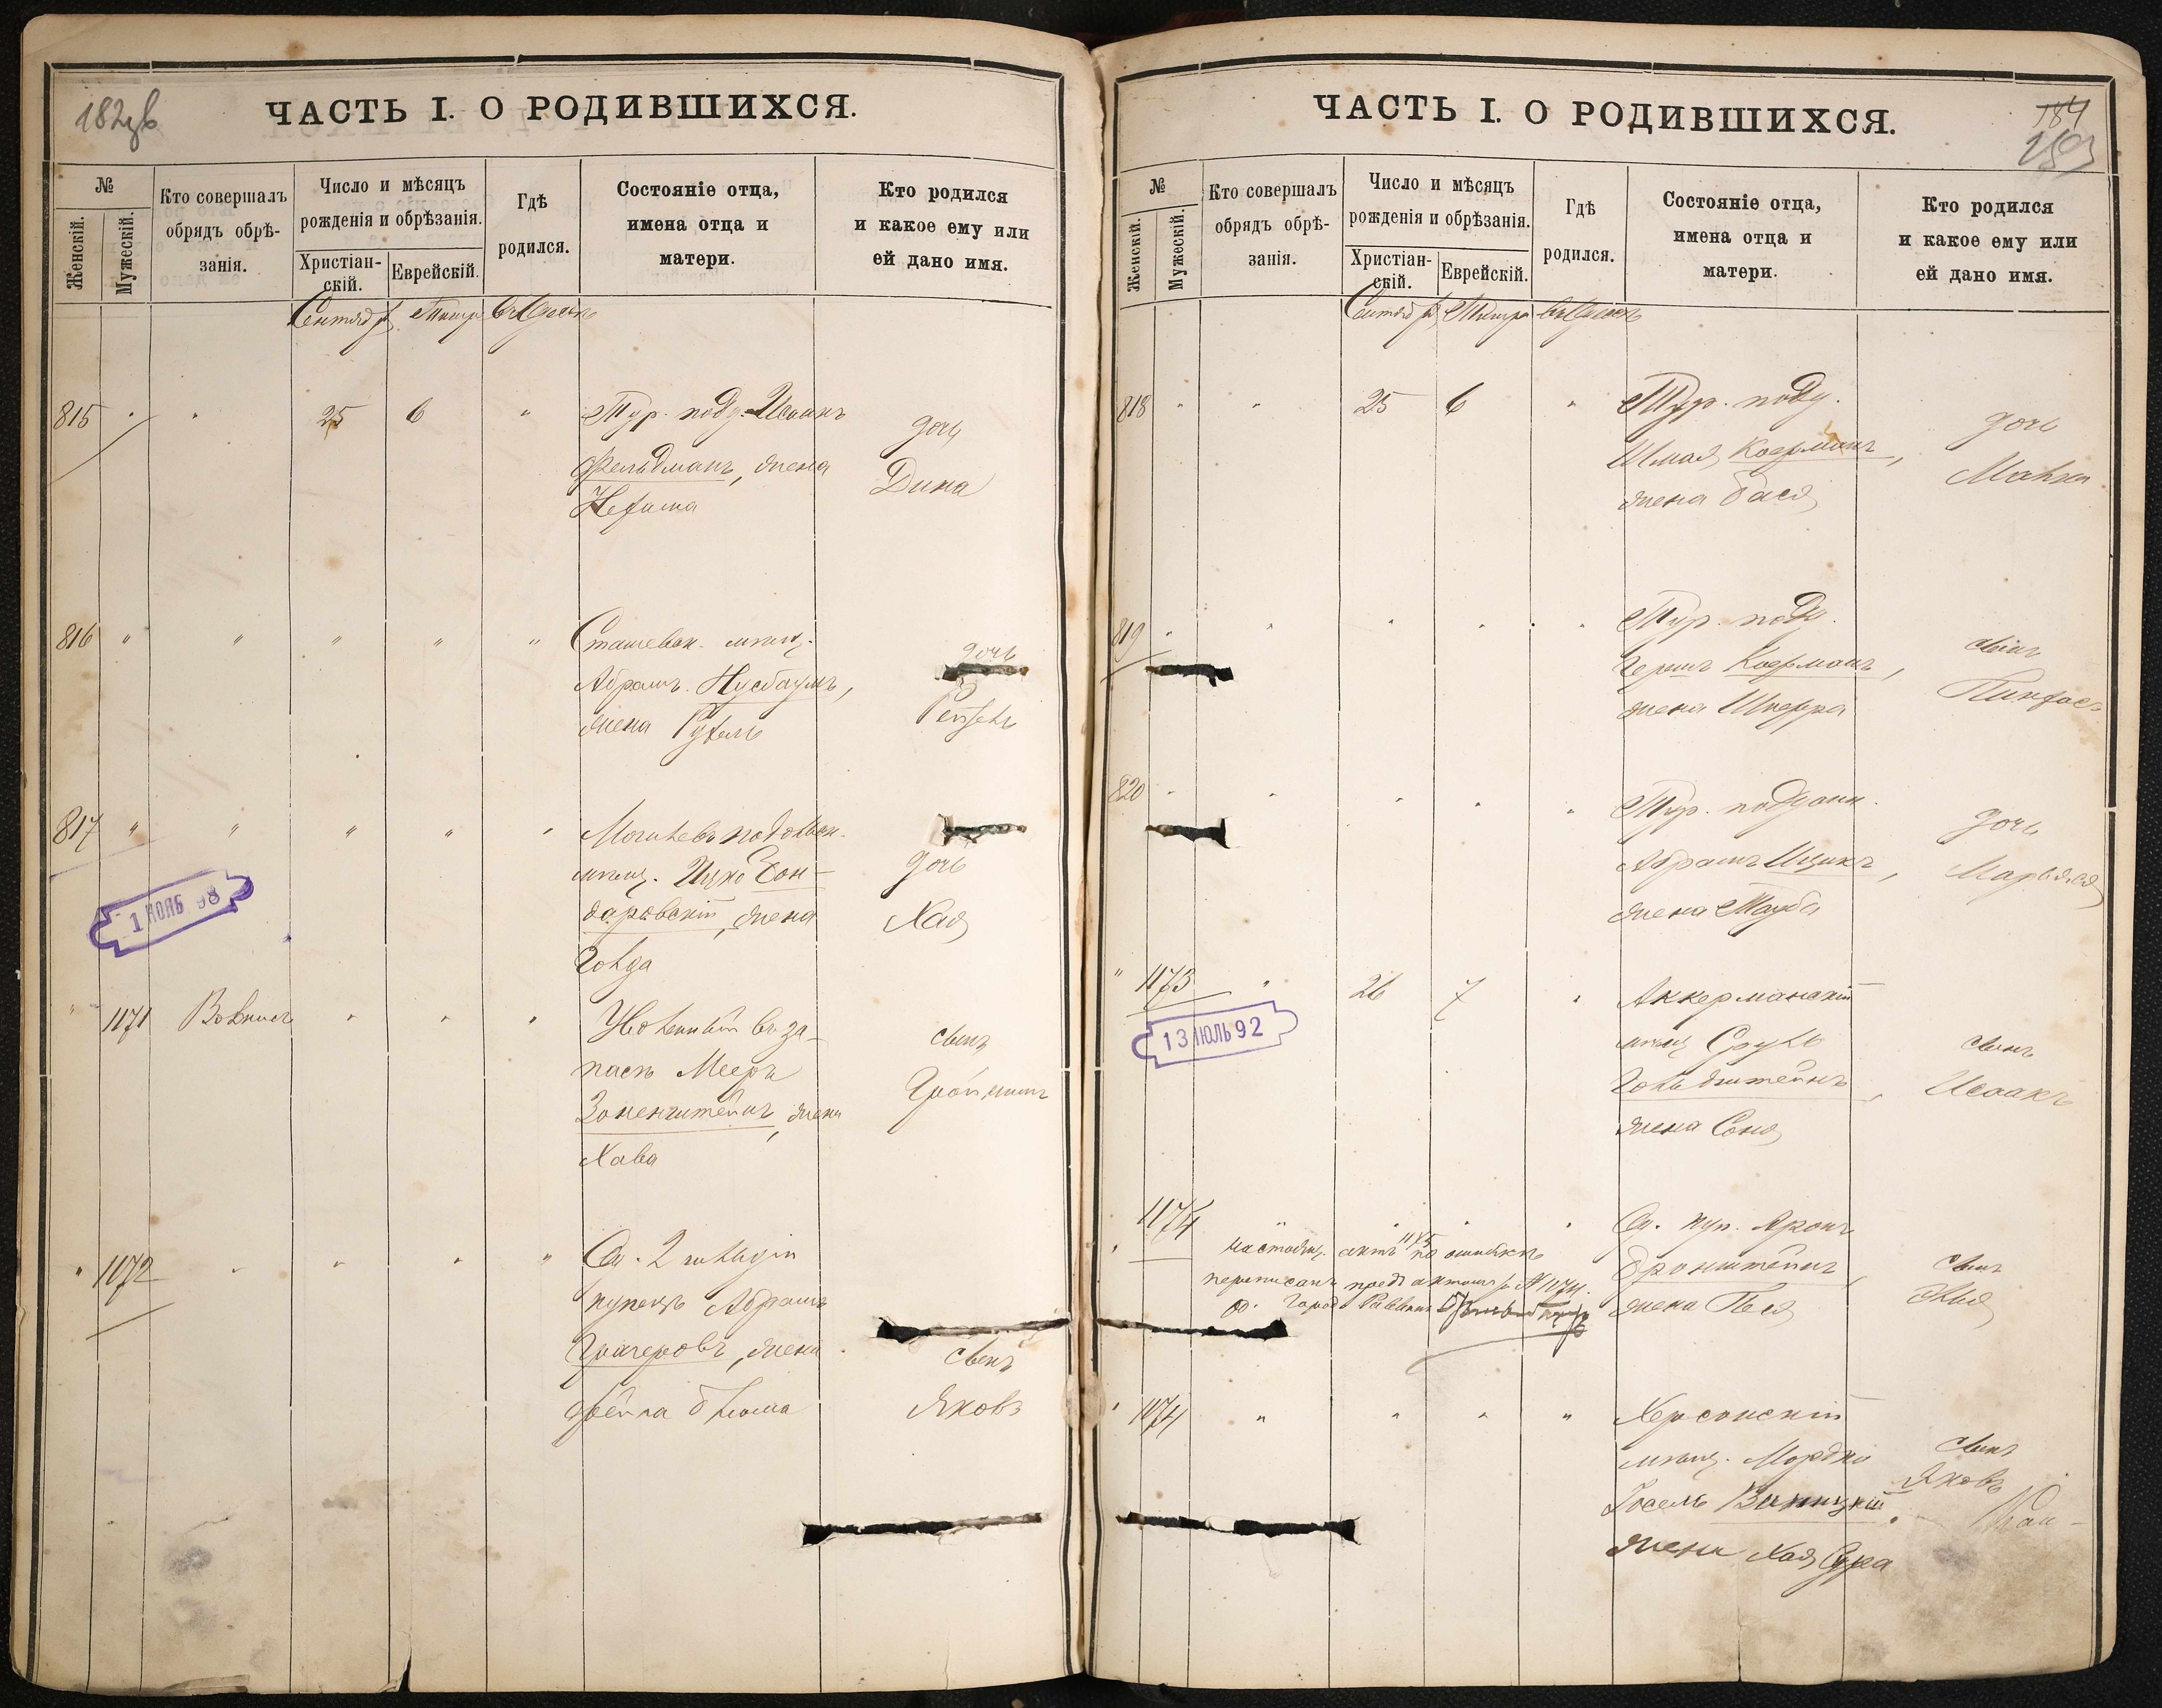 182 об
ЧАСТЬ I. О РОДИВШИХСЯ.
№
Женскій.
Мужескій.
Кто совершалъ
обрядъ обрѣ-
занія.
Число и мѣсяцъ
рожденія и обрѣзанія.
Христіан-
скій.
Еврейскій.
Гдѣ
родился.
Состояніе отца,
имена отца и
матери.
Кто родился
и какое ему или
ей дано имя.
Сентяб. Тишри въ Одессѣ
815 " " 25 6 "
Тур. подд. Исаакъ
Фельдманъ, жена
Нехама
дочь
Дина
816 " " " " "
Сташевск. мѣщ.
Абрамъ Нусбаумъ,
жена Рухель
дочь
Рейзель
817 " " " " "
Могилевъ подольск.
мѣщ. Ицко Бон-
даровскій, жена
Голда
дочь
Хая
1 НОЯБ 98
" 1171 Вовшисъ " " "
Уволенный въ за-
пасъ Мееръ
Зоненштейнъ, жена
Хава
сынъ
" 1172 " " " "
Од. 2 гильдіи
купецъ Абрамъ
жена
Фейга Блюма
сынъ
Яковъ
184
183
ЧАСТЬ I. О РОДИВШИХСЯ.
№
Женскій.
Мужескій.
Кто совершалъ
обрядъ обрѣ-
занія.
Число и мѣсяцъ
рожденія и обрѣзанія.
Христіан-
скій.
Еврейскій.
Гдѣ
родился.
Состояніе отца,
имена отца и
матери.
Кто родился
и какое ему или
ей дано имя.
Сентяб. Тишри въ Одессѣ
818 " " 25 6 "
Тур. подд.
Шмая Коерманъ,
жена Бася
дочь
Малка
819 " " " " "
Тур. подд.
Гершъ Коерманъ,
жена Шпера
сынъ
Пинхасъ
820 " " " " "
Тур. подданн.
Абрамъ Ицикъ,
жена Тауба
дочь
Марьяся
" 1173 " 26 7 "
Аккерманскій
мѣщ. Сруль
Гольдштейнъ,
жена Соня
сынъ
Исаакъ
13 ІЮЛЬ 92
" 1174 " " " "
Од. куп. Аронъ
Бронштейнъ,
жена Песя
сынъ
настоящ. актъ 1175 по ошибкѣ
переписанъ предъ актомъ за № 1174.
Од. Город. Раввинъ
" 1174 " " " "
Херсонскій
мѣщ. Мордко
Іосель Виницкій,
жена Хая Сура
сынъ
Яковъ